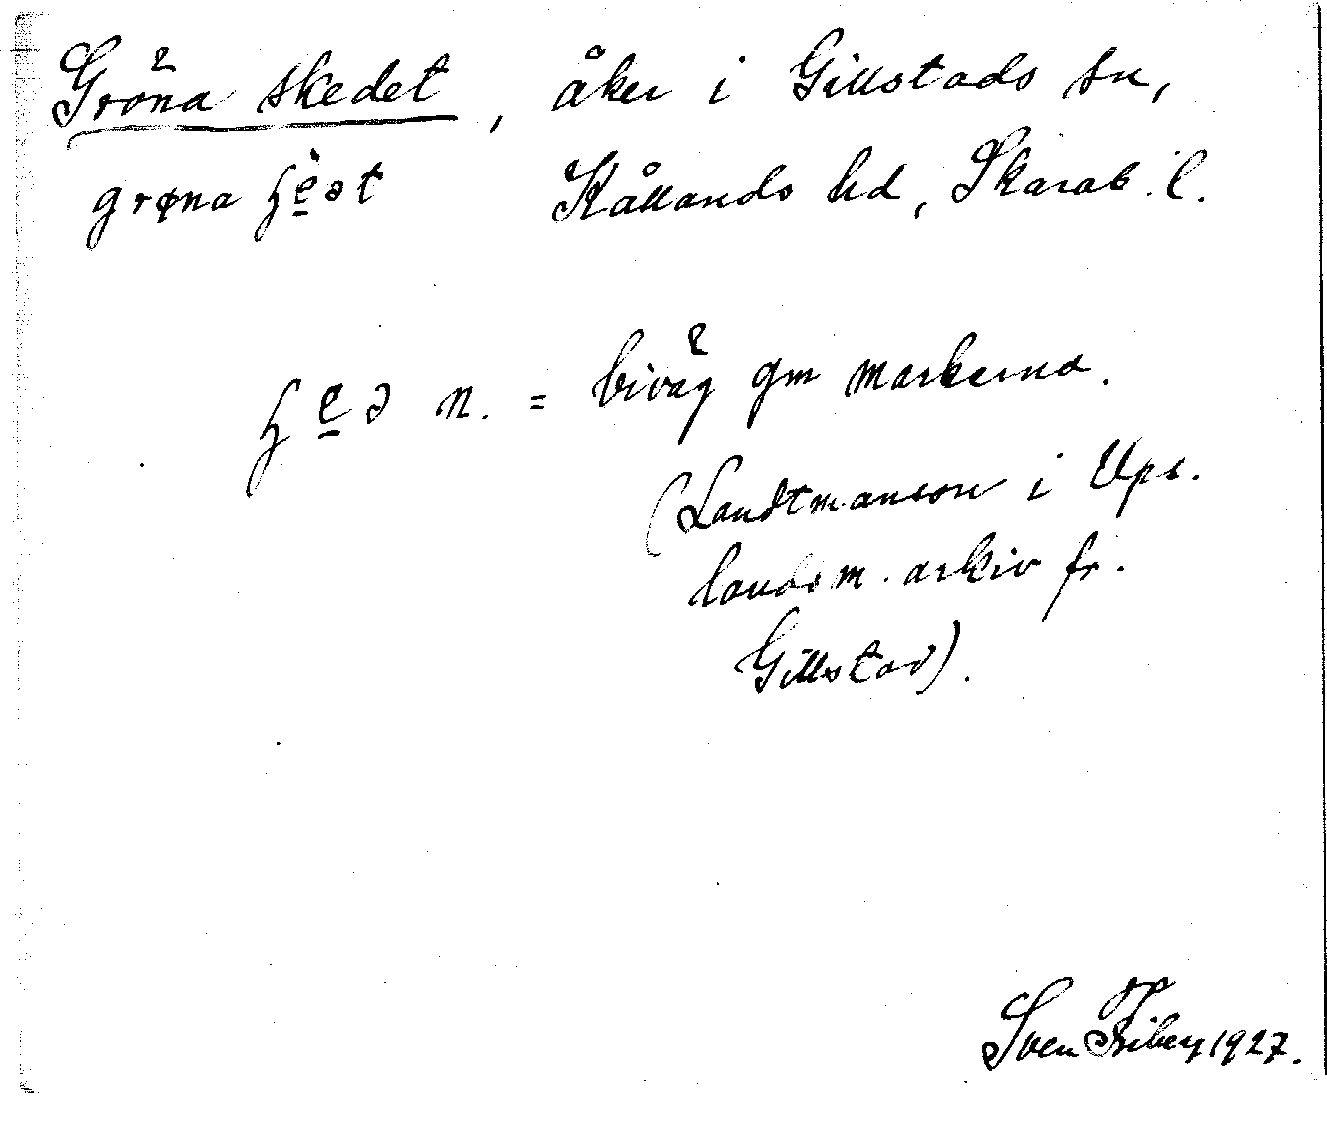 Gröna skedet, åker i Gillstads sn,
grøna ɧe̲ət Kållands hd, Skarab. l.
ɧe̲ə n. = biväg gm markerna.
(Landtmanson i Ups.
landsm. arkiv fr.
Gillstad).
Sven 1927.